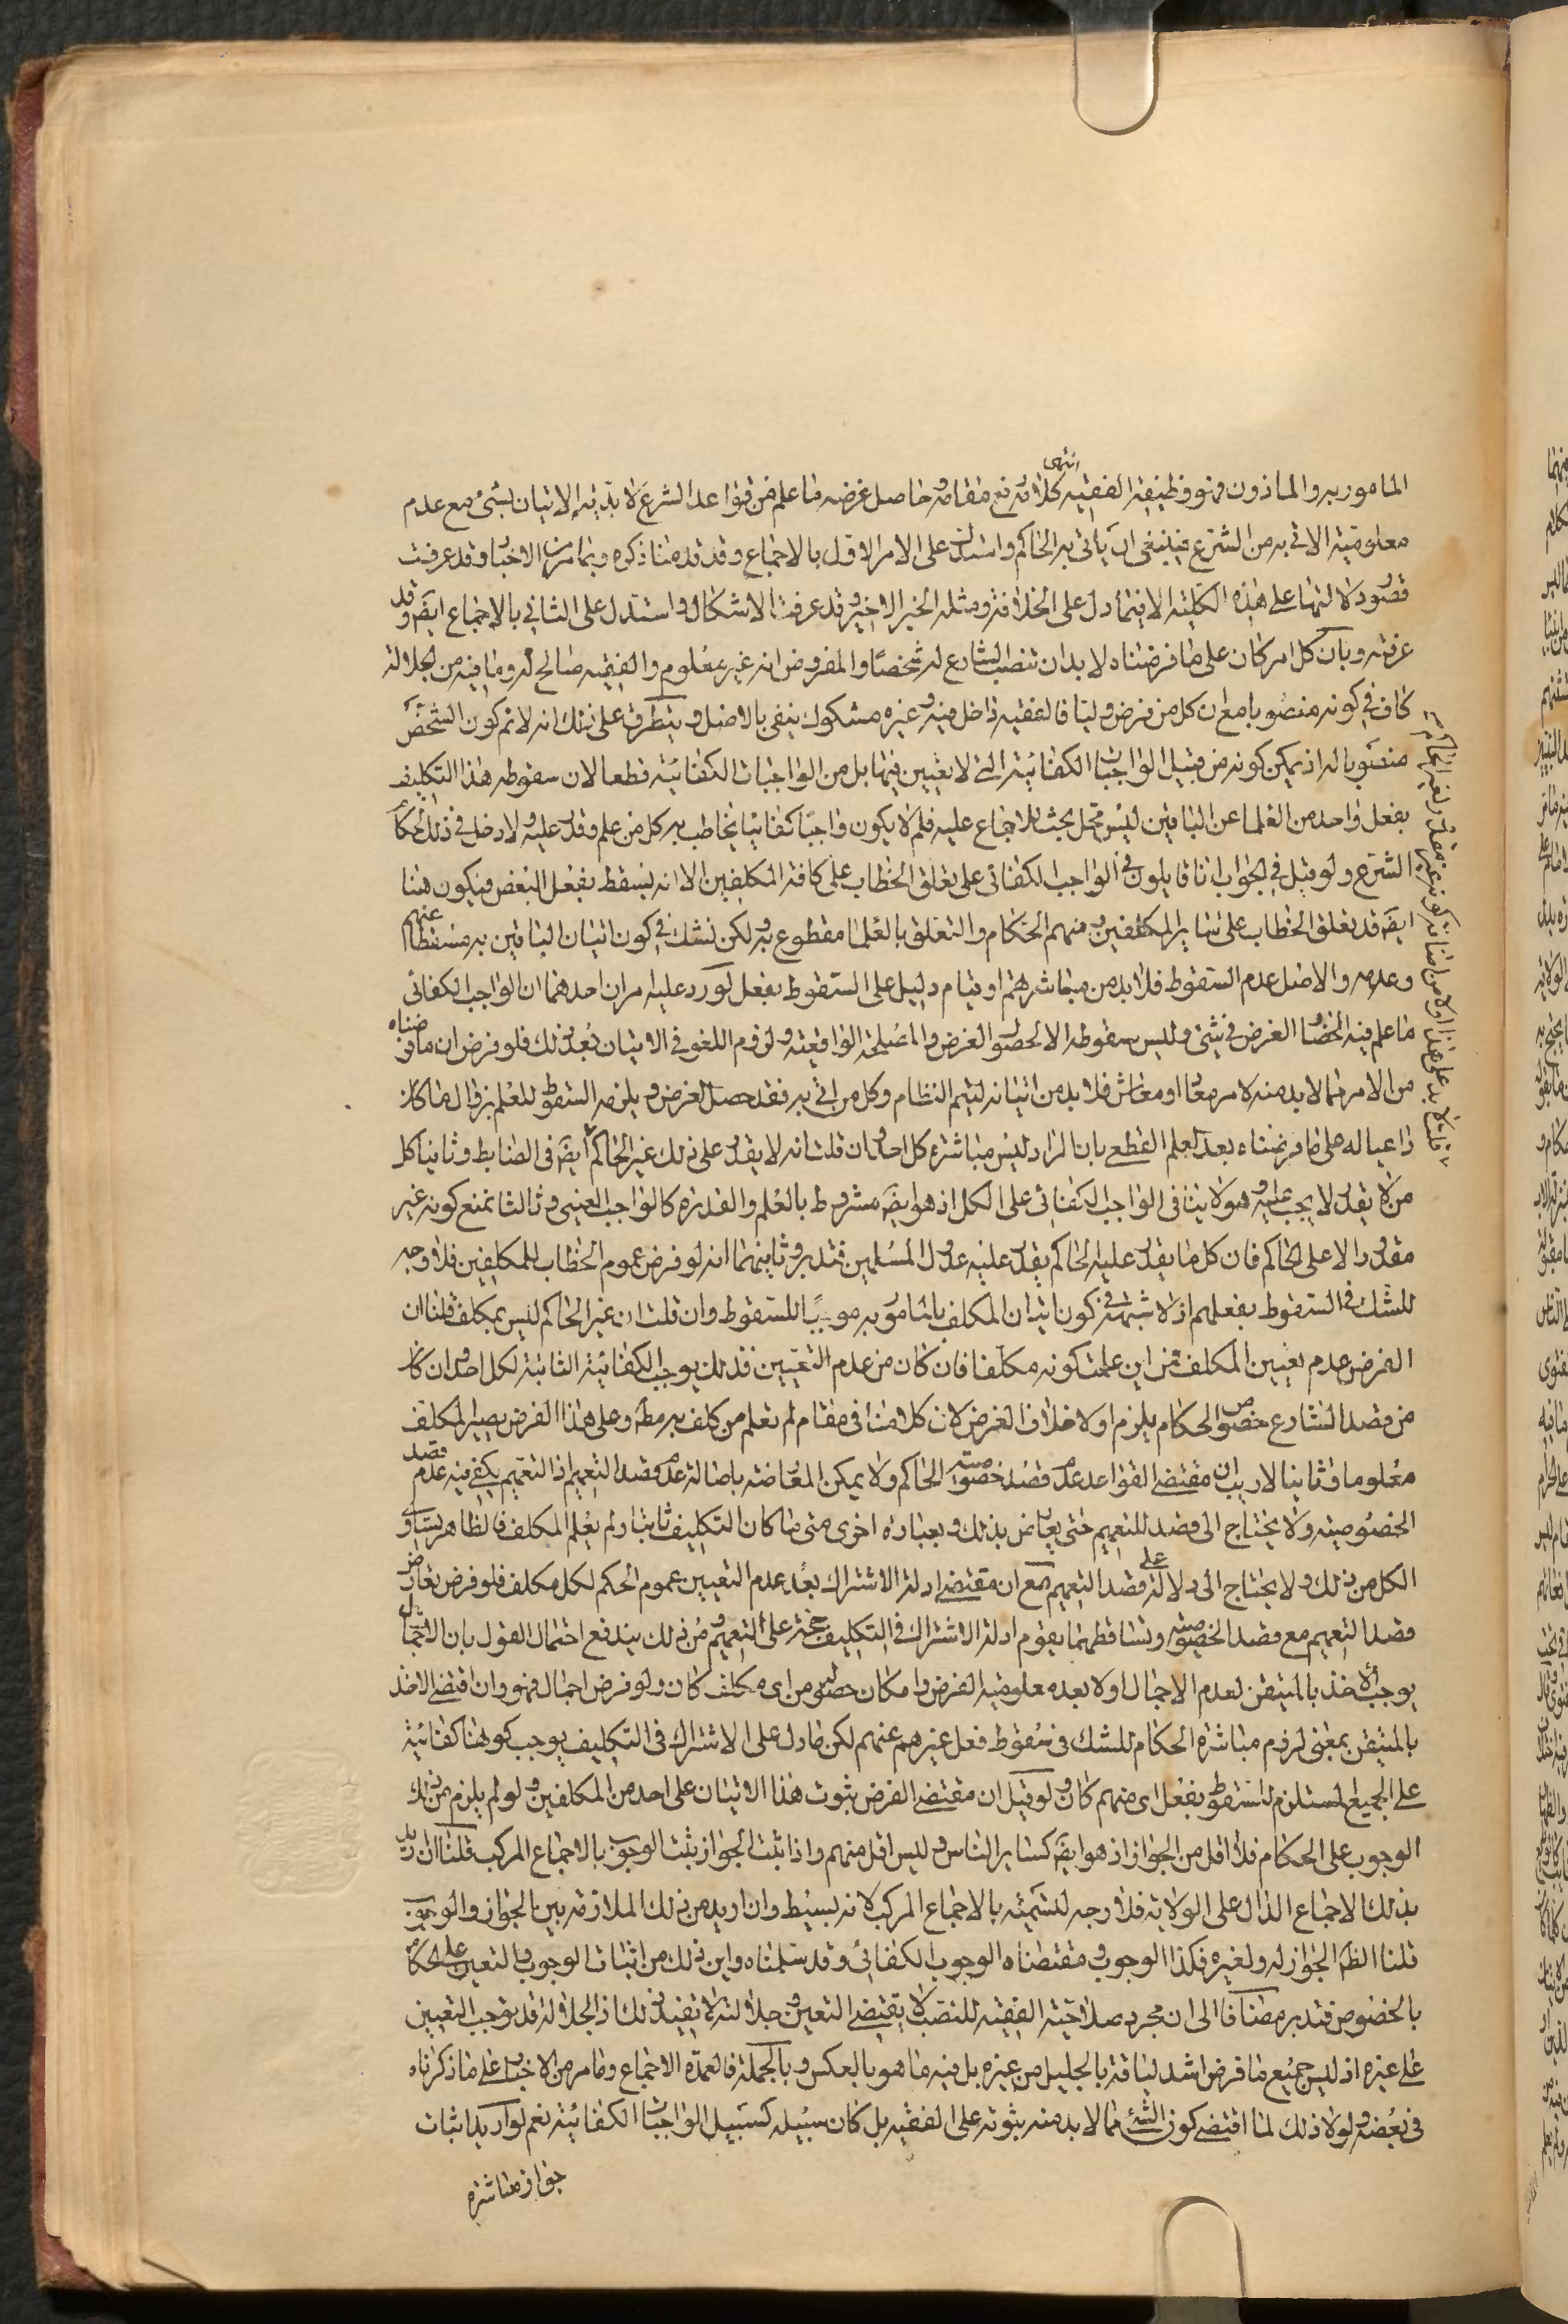 المامور به والماذون فهو وظيفة الفقيه انتهى كلامه رفع مقامه وحاصل غرضه ما علم من قواعد الشرع لا بدية الاتيان بشئ مع عدم
معلومية الاتى به من الشرع فينبغى ان ياتى به الحاكم واستدل على الامر الاول بالاجماع وقد قدمنا ذكره وبما مر من الاخبار وقد عرفت
قصور دلالتها على هذه الكلية الا فيما دل على الخلافة ومثله الخبر الاخير وقد عرفت الاشكال واستدل على الثانى بالاجماع ايضَ وقد
عرفته وبان كل امر كان على ما فرضناه لا بد ان تنصب الشارع له شخصًا والمفروض انه غير معلوم والفقيه صالح له وما فيه من الجلالة
كاف فى كونه منصوبا مع ان كل من فرض وليا فالفقيه داخل فيه وغيره مشكوك ينفى بالاصل ويتطرق على ذلك انه لا نم كون الشخص
منصوبا له اذ يمكن كونه من قبيل الواجبات الكفائية التى لا تعيين فيها بل من الواجبات الكفائية قطعا لان سقوطه هذا التكليف
بفعل واحد من العلما عن الباقين ليس محل بحث للاجماع عليه فلم لا يكون واجبًا كفائيا يخاطب به كل من علم وقدر عليه ولا دخل فى ذلك لحكام
الشرع ولو قيل فى الجواب انا قايلون فى الواجب الكفائى على تعلق الخطاب على كافة المكلفين الا انه يسقط بفعل البعض فيكون هنا
ايضَ قد تعلق الخطاب على ساير المكلفين ومنهم الحكام والتعلق بالعلما مقطوع به ولكن نشك فى كون اتيان الباقين به مسقطا عنهم
وعدمه والاصل عدم السقوط فلا بد من مباشرهم او قيام دليل على السقوط بفعل لورد عليه امران احدهما ان الواجب الكفائى
ما علم فيه انحصار الغرض فى شئ وليس سقوطه الا لحصول الغرض والمصلحة الواقعية ولزوم اللغو فى الاتيان بعد ذلك فلو فرض ان ما فرضناه
من الامر مما لا بد منه لامر معاد او معاش فلا بد من اتيانه ليتم النظام وكل من اتى به فقد حصل الغرض ويلزمه السقوط للعلم بزوال ما كان
داعيا له على ما فرضناه بعد العلم القطعى بان المراد ليس مباشرة كل احد وان قلت انه لا يقدر على ذلك غير الحاكم ايضَ فى الضابط وثانيا كل
من لا يقدر لا يجب عليه وهو لا ينافى الواجب الكفائى على الكل اذ هو ايضَ مشروط بالعلم والقدرة كالواجب العينى وثالثا نمنع كونه غير
مقدور الا على الحاكم فان كل ما يقدر عليه الحاكم يقدر عليه عدول المسلمين فتدبر وثانيهما انه لو فرض عموم الخطاب للمكلفين فلا وجه
للشك فى السقوط بفعلهم اذ لا شبهة فى كون اتيان المكلف بالمامور به موجبًا للسقوط وان قلت ان غير الحاكم ليس بمكلف قلنا ان
الفرض عدم تعيين المكلف فمن اين علمت كونه مكلفا فان كان من عدم التعيين فذلك يوجب الكفائية الثابتة لكل احد وان كان
من قصد الشارع خصوص الحكام يلزم اولا خلاف الغرض لان كلامنا فى مقام لم نعلم من كلف به مطَ وعلى هذا الفرض يصير المكلف
معلوما وثانيا لا ريب ان مقتضى القواعد عدم قصد خصوصية الحاكم ولا يمكن المعارضة باصالة عدم قصد التعميم اذ التعميم يكفى فيه عدم قصد
الخصوصية ولا يحتاج الى قصد للتعميم حتى يعارض بذلك وبعبارة اخرى متى ما كان التكليف ثابتا ولم يعلم المكلف فالظاهر تساوى
الكل من ذلك ولا يحتاج الى دلالة على قصد التعميم مع ان مقتضى ادلة الاشتراك بعد عدم التعيين عموم الحكم لكل مكلف فلو فرض تعارض
قصد التعميم مع قصد الخصوصية وتساقطهما يقوم ادلة الاشتراك فى التكليف حجة على التعميم ومن ذلك يندفع احتمال القول بان الاجمال
يوجب الاخذ بالمتيقن لعدم الاجمال اولا بعد معلومية الغرض وامكان حصوله من اى مكلف كان ولو فرض اجمال فهو وان اقتضى الاخذ
بالمتيقن بمعنى لزوم مباشرة الحكام للشك فى سقوط فعل غيرهم عنهم لكن ما دل على الاشتراك فى التكليف يوجب كونها كفائية
على الجميع المستلزم للسقوط بفعل اى منهم كان ولو قيل ان مقتضى الفرض ثبوت هذا الاتيان على احد من المكلفين ولو لم يلزم من ذلك
الوجوب على الحكام فلا اقل من الجواز اذ هو ايضَ كساير الناس وليس اقل منهم واذا ثبت الجواز يثبت الوجوب بالاجماع المركب قلنا ان اريد
بذلك الاجماع الدال على الولاية فلا وجه لتسميته بالاجماع المركب لانه بسيط وان اريد من ذلك الملازمة بين الجواز والوجوب
قلنا الظَ الجواز له ولغيره فكذا الوجوب ومقتضاه الوجوب الكفائى وقد سلمناه واين ذلك من اثبات الوجوب والتعيين على الحكام
بالخصوص فتدبر مضافا الى ان مجرد صلاحية الفقيه للنصب لا يقتضى التعين وجلالته لا تفيد ذلك اذ الجلالة قد يوجب التعيين
على غيره اذ ليس جميع ما فرض اشد لياقة بالجليل من غيره بل فيه ما هو بالعكس وبالجملة فالعمدة الاجماع وما مر من الاخبار على ما ذكرناه
فى بعضه ولولا ذلك لما اقتضى كون الشئ مما لا بد منه ثبوته على الفقيه بل كان سبيله كسبيل الواجبات الكفائية نعم لو اريد اثبات
جواز مباشرة
قلت لا بد على هذا اولا من اثبات كونه غير مقدور لغير الحاكم